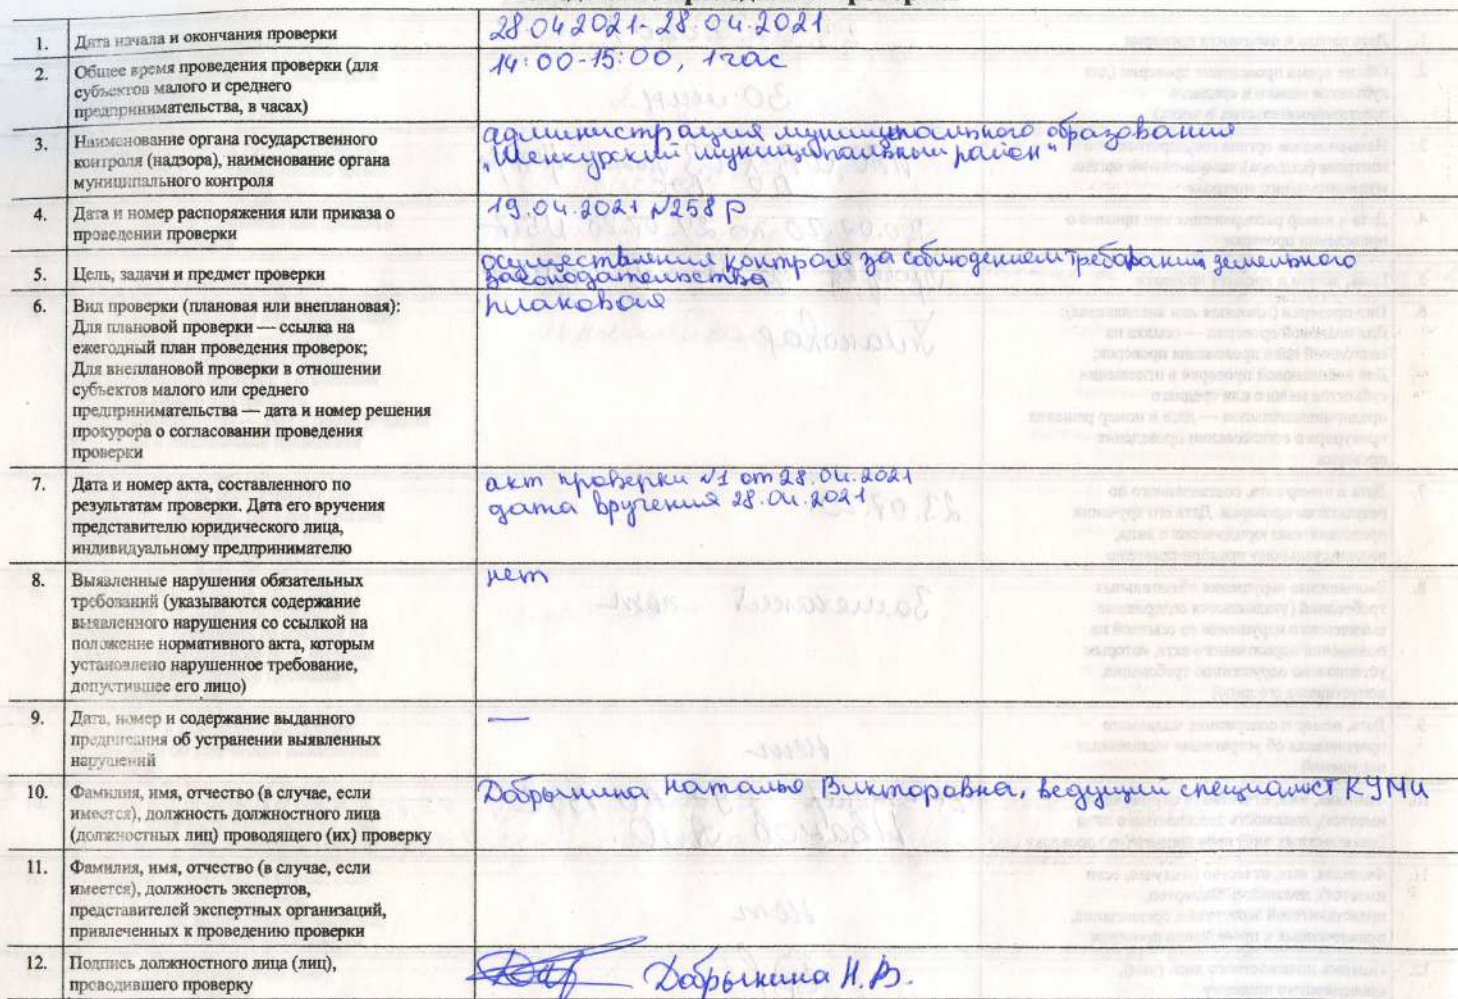 1. Дата начала и окончания проверки
28.04.2021-28.04.2021
2. Общее время проведения проверки (для
субъектов малого и среднего
предпринимательства, в часах)
14:00-15:00, 1 час
3. Наименование органа государственного
контроля (надзора), наименование органа
муниципального контроля
администрация муниципального образования
„Шенкурский муниципальный район"
4. Дата и номер распоряжения или приказа о
проведении проверки
19.04.2021 №258 р
5. Цель, задачи и предмет проверки
осуществления контроля за соблюдением требований земельного
законодательства
6. Вид проверки (плановая или внеплановая):
Для плановой проверки — ссылка на
ежегодный план проведения проверок;
Для внеплановой проверки в отношении
субъектов малого или среднего
предпринимательства — дата и номер решения
прокурора о согласовании проведения
проверки
плановая
7. Дата и номер акта, составленного по
результатам проверки. Дата его вручения
представителю юридического лица,
индивидуальному предпринимателю
акт проверки №1 от 28.04.2021
дата вручения 28.04.2021
8. Выявленные нарушения обязательных
требований (указываются содержание
выявленного нарушения со ссылкой на
положение нормативного акта, которым
установлено нарушенное требование,
допустившее его лицо)
нет
9. Дата, номер и содержание выданного
предписания об устранении выявленных
нарушений
—
10. Фамилия, имя, отчество (в случае, если
имеется), должность должностного лица
(должностных лиц) проводящего (их) проверку
Добрынина Наталья Викторовна, ведущий специалист КУМИ
11. Фамилия, имя, отчество (в случае, если
имеется), должность экспертов,
представителей экспертных организаций,
привлеченных к проведению проверки
12. Подпись должностного лица (лиц),
проводившего проверку
Добрынина Н.В.